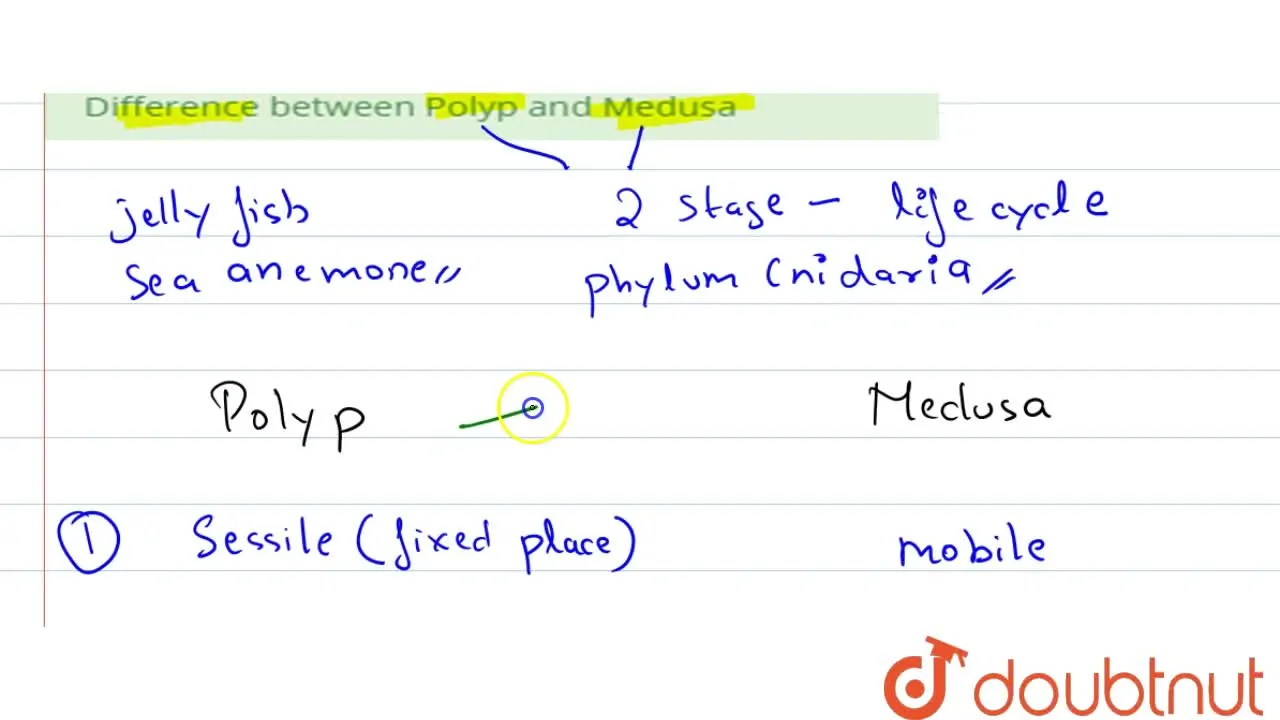 Difference between Polyp and Medusa
jelly fish 2 stage - life cycle
sea anemone,, phylum Cnidaria //
Polyp Medusa
1 Sessile (fixed place) mobile
doubtnut